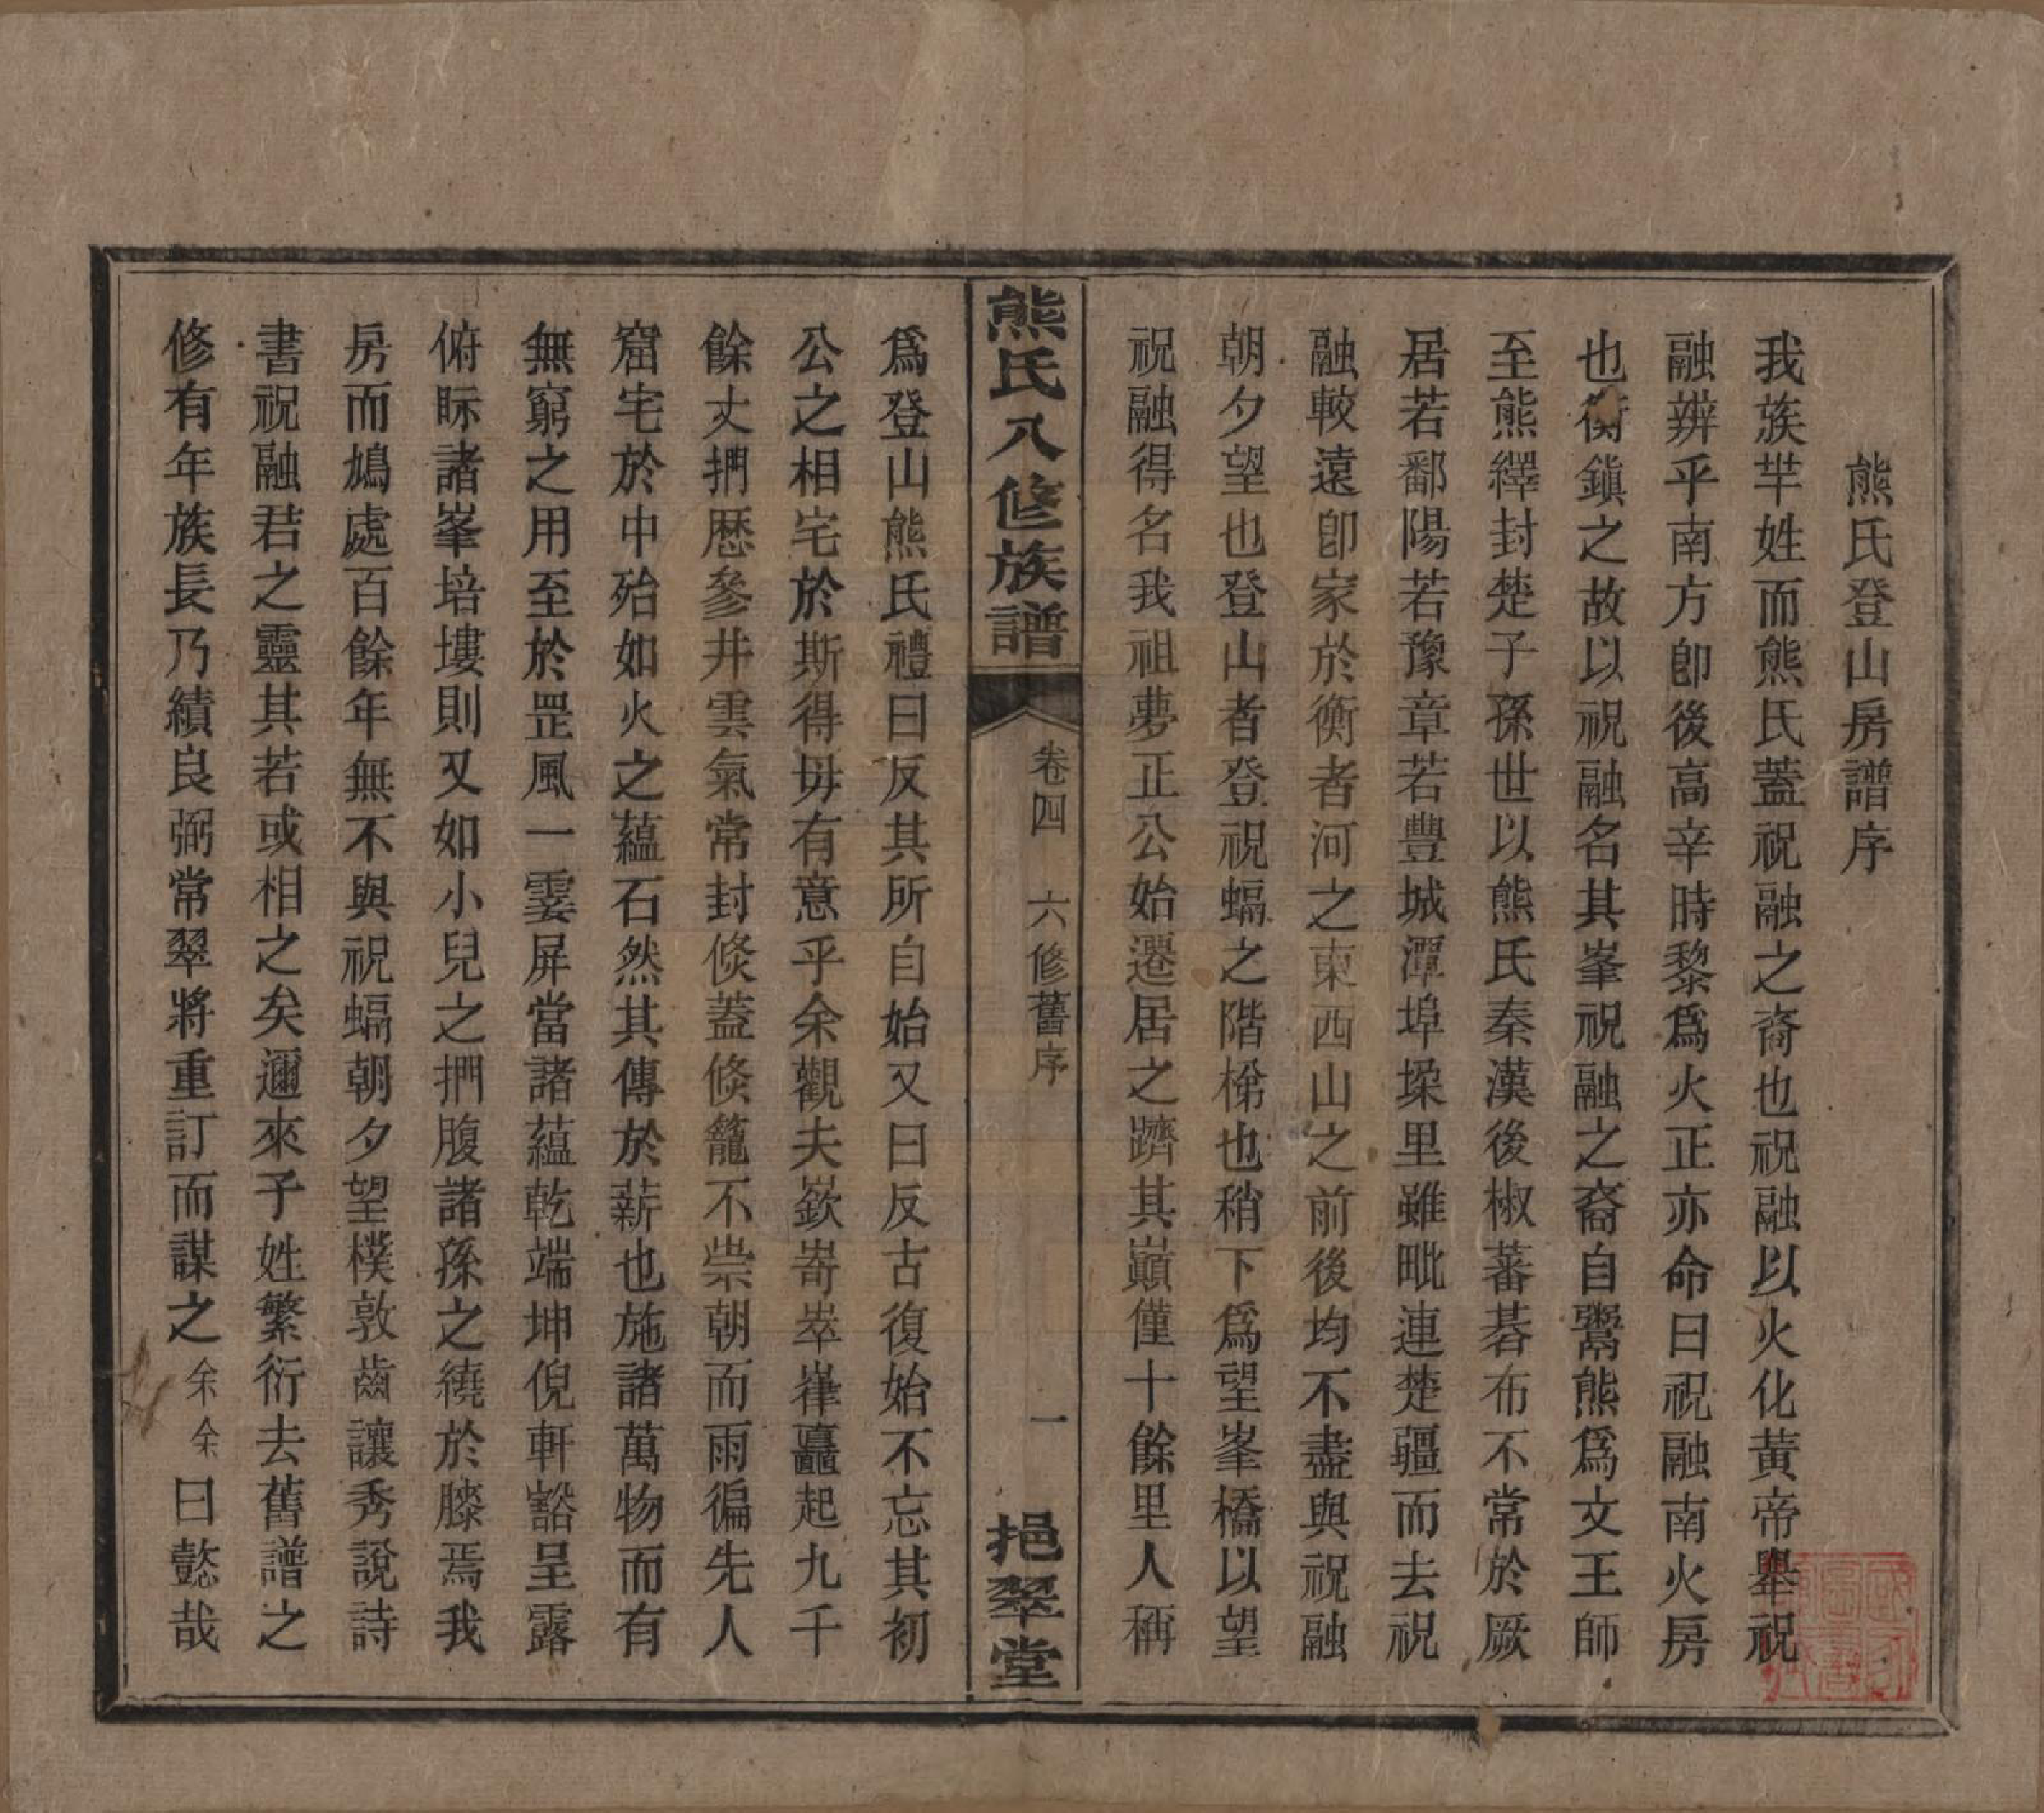 熊氏登山房譜序
我族羋姓而熊氏蓋祝融之裔也祝融以火化黃帝舉祝
融辨乎南方卽後高辛時黎爲火正亦命曰祝融南火房
也衡鎭之故以祝融名其峯祝融之裔自鬻熊爲文王師
至熊繹封楚子孫世以熊氏秦漢後椒蕃碁布不常於厥
居若鄱陽若豫章若豐城潭埠墚里雖毗連楚疆而去祝
融較遠卽家於衡者河之東西山之前後均不盡與祝融
朝夕望也登山者登祝蝠之階梯也稍下爲望峯橋以望
祝融得名我祖夢正公始遷居之躋其巔僅十餘里人稱
熊氏八修族譜
卷四 六修舊序
一
挹翠堂
爲登山熊氏禮曰反其所自始又曰反古復始不忘其初
公之相宅於斯得毋有意乎余觀夫嶔崎崒嵂矗起九千
餘丈捫歷參井雲氣常封倐蓋倐籠不崇朝而雨徧先人
窟宅於中殆如火之蘊石然其傳於薪也施諸萬物而有
無窮之用至於罡風一霎屏當諸蘊乾端坤倪軒豁呈露
俯眎諸峯培塿則又如小兒之捫腹諸孫之繞於膝焉我
房而鳩處百餘年無不與祝蝠朝夕望樸敦齒讓秀說詩
書祝融君之靈其若或相之矣邇來子姓繁衍去舊譜之
修有年族長乃績良弼常翠將重訂而謀之余余曰懿哉